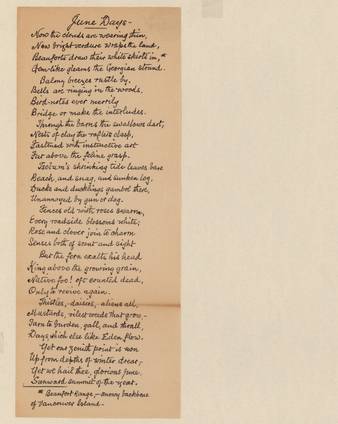 June Days -
Now the clouds are wearing thin,
Now bright verdure wraps the land,
Beauforts draw their white skirts in, *
Gem-like gleams the Georgian strand.
Balmy breezes rustle by.
Bells are ringing in the woods.
Bird-notes ever merrily
Bridge or make the interludes.
Through the barns the swallows dart,
Nests of clay the rafters clasp,
Fastened with instinctive art
Far above the feline grasp.
shrinking tide leaves bare
Beach, and snag, and sunken log,
Ducks and ducklings gambol there,
Unannoyed by gun or dog.
Fences old with roses swarm,
Every roadside blossoms white;
Rose and clover join to charm
Senses both of scent and sight
But the fern exalts his head
King above the growing grain,
Native foe! oft counted dead,
Only to revive again.
Thistles, daisies, - aliens all,
Mustards, vilest weeds that grow, -
Turn to burden, gall, and thrall,
Days which else like Eden flow.
Yet one zenith point is won
Up from depths of winter drear, -
Yet we hail thee, glorious June
Sunward summit of the year.
* Beaufort Range, - snowy backbone
of Vancouver Island -